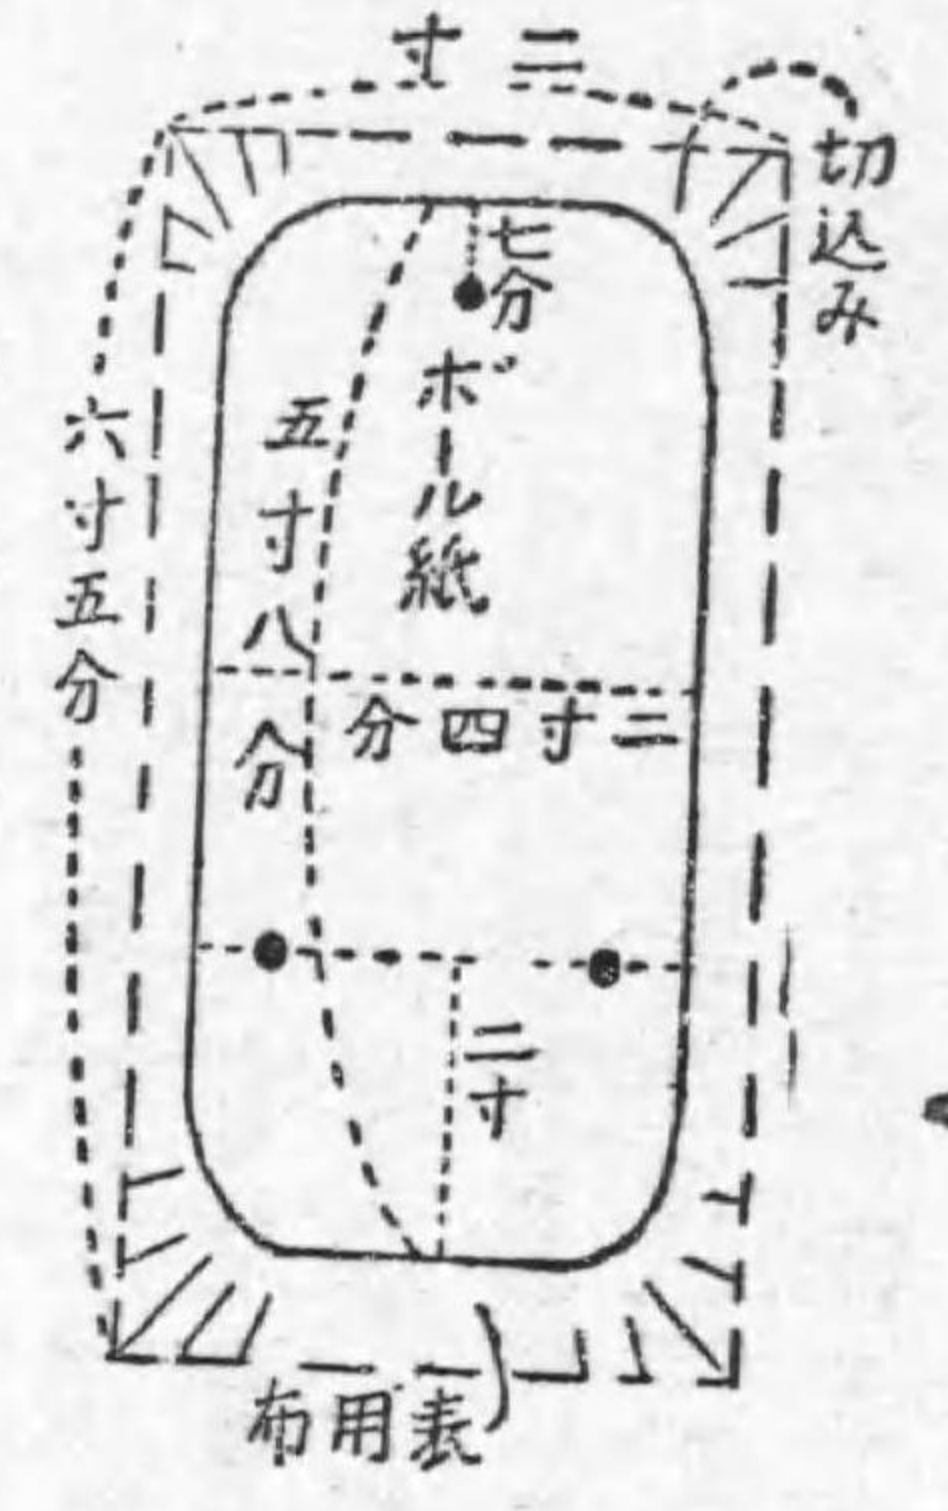 二寸
切込み
七分
ボール紙
五寸八分
六寸五分
二寸四分
二寸
表用布